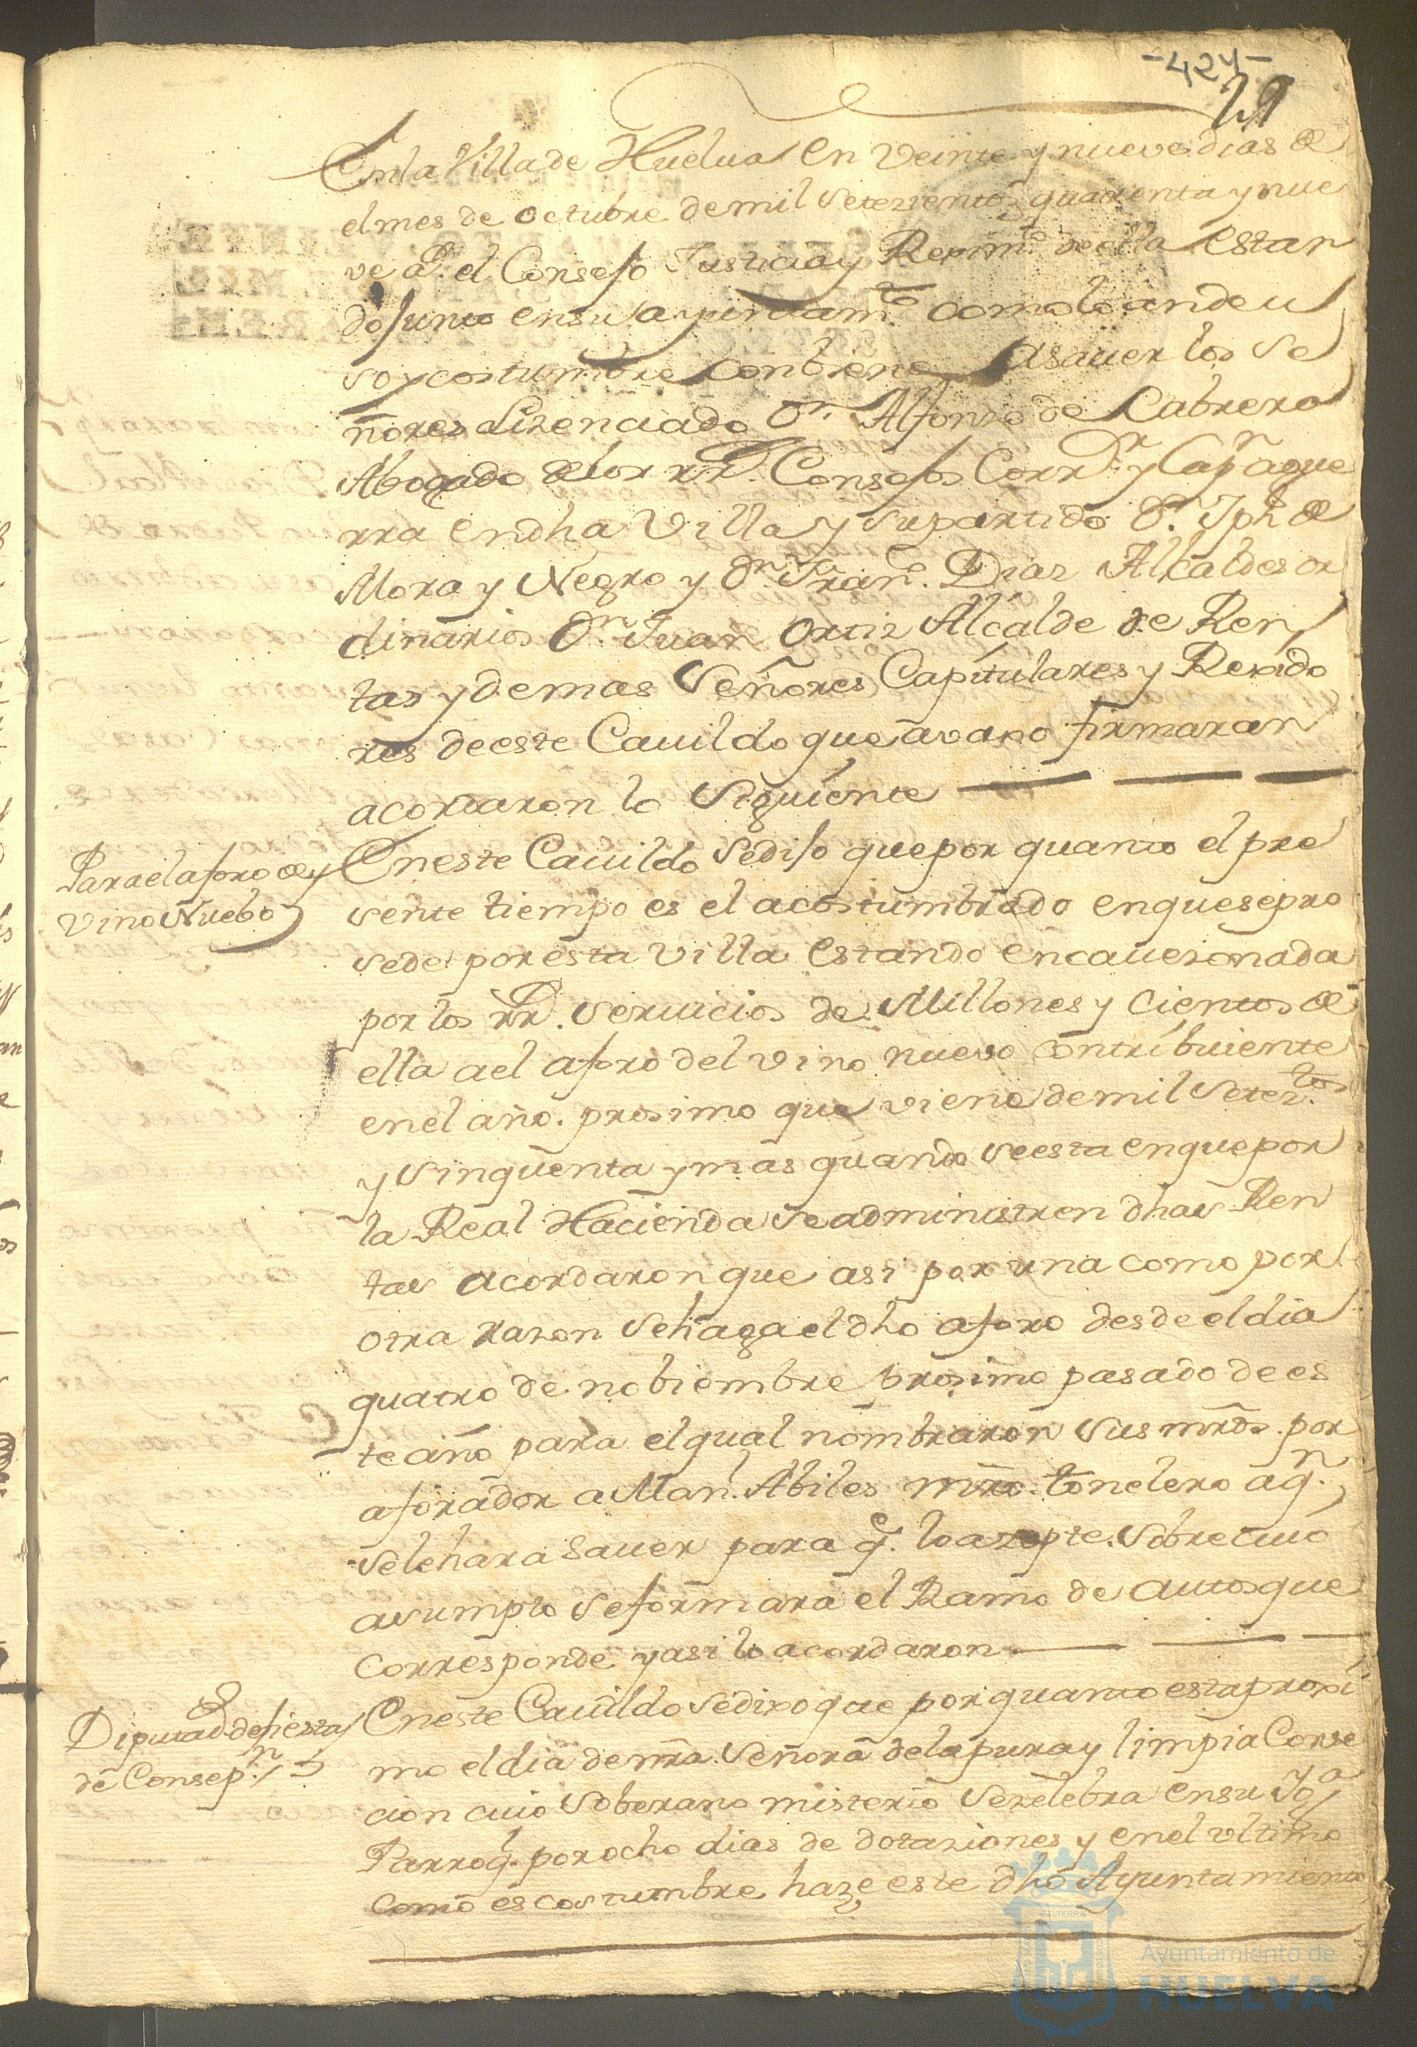 -424-
29
En la Villa de Huelua en veinte y nueve dias de
el mes de octubre de mil setezientos quarenta y nue
ve as. el Consejo Justicia y Reximto. de ella estan
do junto en su ayuntamto. como lo an de u
so y costumbre conbiene asauer los Se
ñores Lizenciado Dn. Alfonso de Cabrera
Abogado de los RRs. Consejos Corrdr. y Capn. a gue
rra en dha Villa y su partido Dn. Jph de
Mora y Negro y Dn. Franco. Diaz Alcaldes or
dinarios Dn. Juan Ortiz Alcalde de Ren
tas y demas Señores Capitulares y Rexido
res de este Cauildo que avaxo firmaran
acordaron lo siguiente
Para el aforo de
Vino Nuebo
En este Cauildo se dijo que por quanto el pre
sente tiempo es el acostumbrado en que se pro
sede por esta Villa estando encauezonada
por los RRs. servicios de Millones y cientos de
ella a el aforo del vino nuevo contribuiente
en el año. prosimo que viene de mil seteztos.
y sinquenta y mas quando se esta en que por
la Real Hacienda se administren dhas Ren
tas acordaron que asi por una como por
otra razon se haga el dho aforo desde el dia
quatro de nobiembre prosimo pasado de es
te año para el qual nombraron sus mrds. por
aforador a Manl. Abiles mro. tonelero a qn.
se le hara sauer para q. lo azepte. sobre cuio
asumpto se formara el Ramo de autos que
corresponde y asi lo acordaron
Diputados de fiesta
de Consepn.
En este Cauildo se dixo que por quanto esta proxi
mo el dia de nra. Señora de la pura y limpia Conse
cion cuio soberano misterio se zelebra en su Yga
Parroql. por ocho dias de dotaziones y en el ultimo
como es costumbre haze este dho Ayuntamiento
Ayuntamiento de
HUELVA